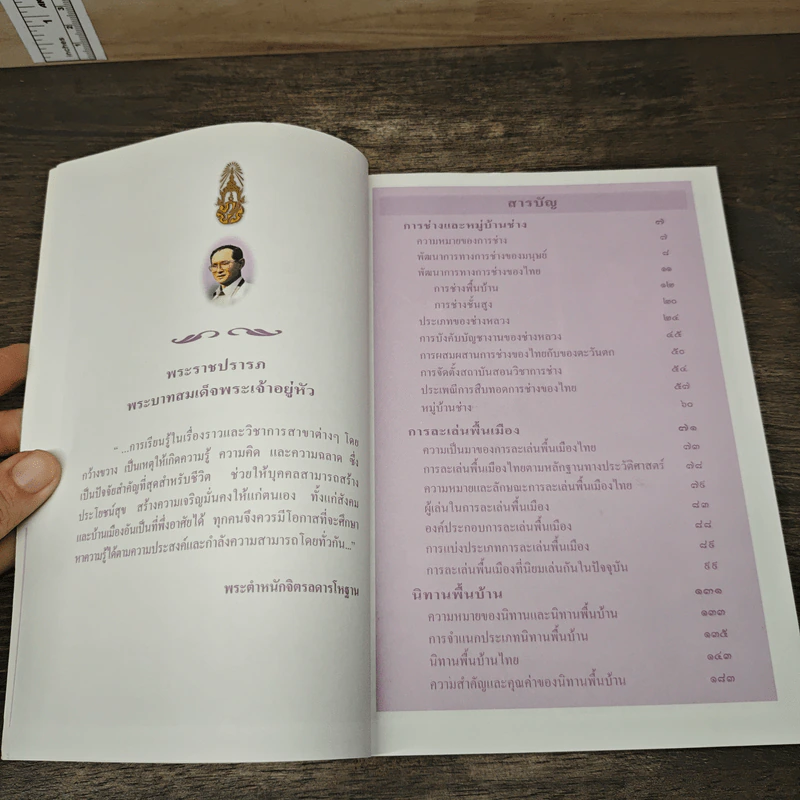 พระราชปรารภ
พระบาทสมเด็จพระเจ้าอยู่หัว
“ ...การเรียนรู้ในเรื่องราวและวิชาการสาขาต่างๆ โดย
กว้างขวาง เป็นเหตุให้เกิดความรู้ ความคิด และความฉลาด ซึ่ง
เป็นปัจจัยสำคัญที่สุดสำหรับชีวิต ช่วยให้บุคคลสามารถสร้าง
ประโยชน์สุข สร้างความเจริญมั่นคงให้แก่ตนเอง ทั้งแก่สังคม
และบ้านเมืองอันเป็นที่พึ่งอาศัยได้ ทุกคนจึงควรมีโอกาสที่จะศึกษา
หาความรู้ได้ตามความประสงค์และกำลังความสามารถโดยทั่วกัน...”
พระตำหนักจิตรลดารโหฐาน
สารบัญ
การช่างและหมู่บ้านช่าง ๗
ความหมายของการช่าง ๗
พัฒนาการทางการช่างของมนุษย์ ๘
พัฒนาการทางการช่างของไทย ๑๑
การช่างพื้นบ้าน ๑๒
การช่างชั้นสูง ๒๐
ประเภทของช่างหลวง ๒๔
การบังคับบัญชางานของช่างหลวง ๔๕
การผสมผสานการช่างของไทยกับของตะวันตก ๕๐
การจัดตั้งสถาบันสอนวิชาการช่าง ๕๔
ประเพณีการสืบทอดการช่างของไทย ๕๗
หมู่บ้านช่าง ๖๐
การละเล่นพื้นเมือง ๗๑
ความเป็นมาของการละเล่นพื้นเมืองไทย ๗๓
การละเล่นพื้นเมืองไทยตามหลักฐานทางประวัติศาสตร์ ๗๘
ความหมายและลักษณะการละเล่นพื้นเมืองไทย ๗๙
ผู้เล่นในการละเล่นพื้นเมือง ๘๓
องค์ประกอบการละเล่นพื้นเมือง ๘๘
การแบ่งประเภทการละเล่นพื้นเมือง ๘๙
การละเล่นพื้นเมืองที่นิยมเล่นกันในปัจจุบัน ๙๙
นิทานพื้นบ้าน ๑๓๑
ความหมายของนิทานและนิทานพื้นบ้าน ๑๓๓
การจำแนกประเภทนิทานพื้นบ้าน ๑๓๕
นิทานพื้นบ้านไทย ๑๔๓
ความสำคัญและคุณค่าของนิทานพื้นบ้าน ๑๘๓